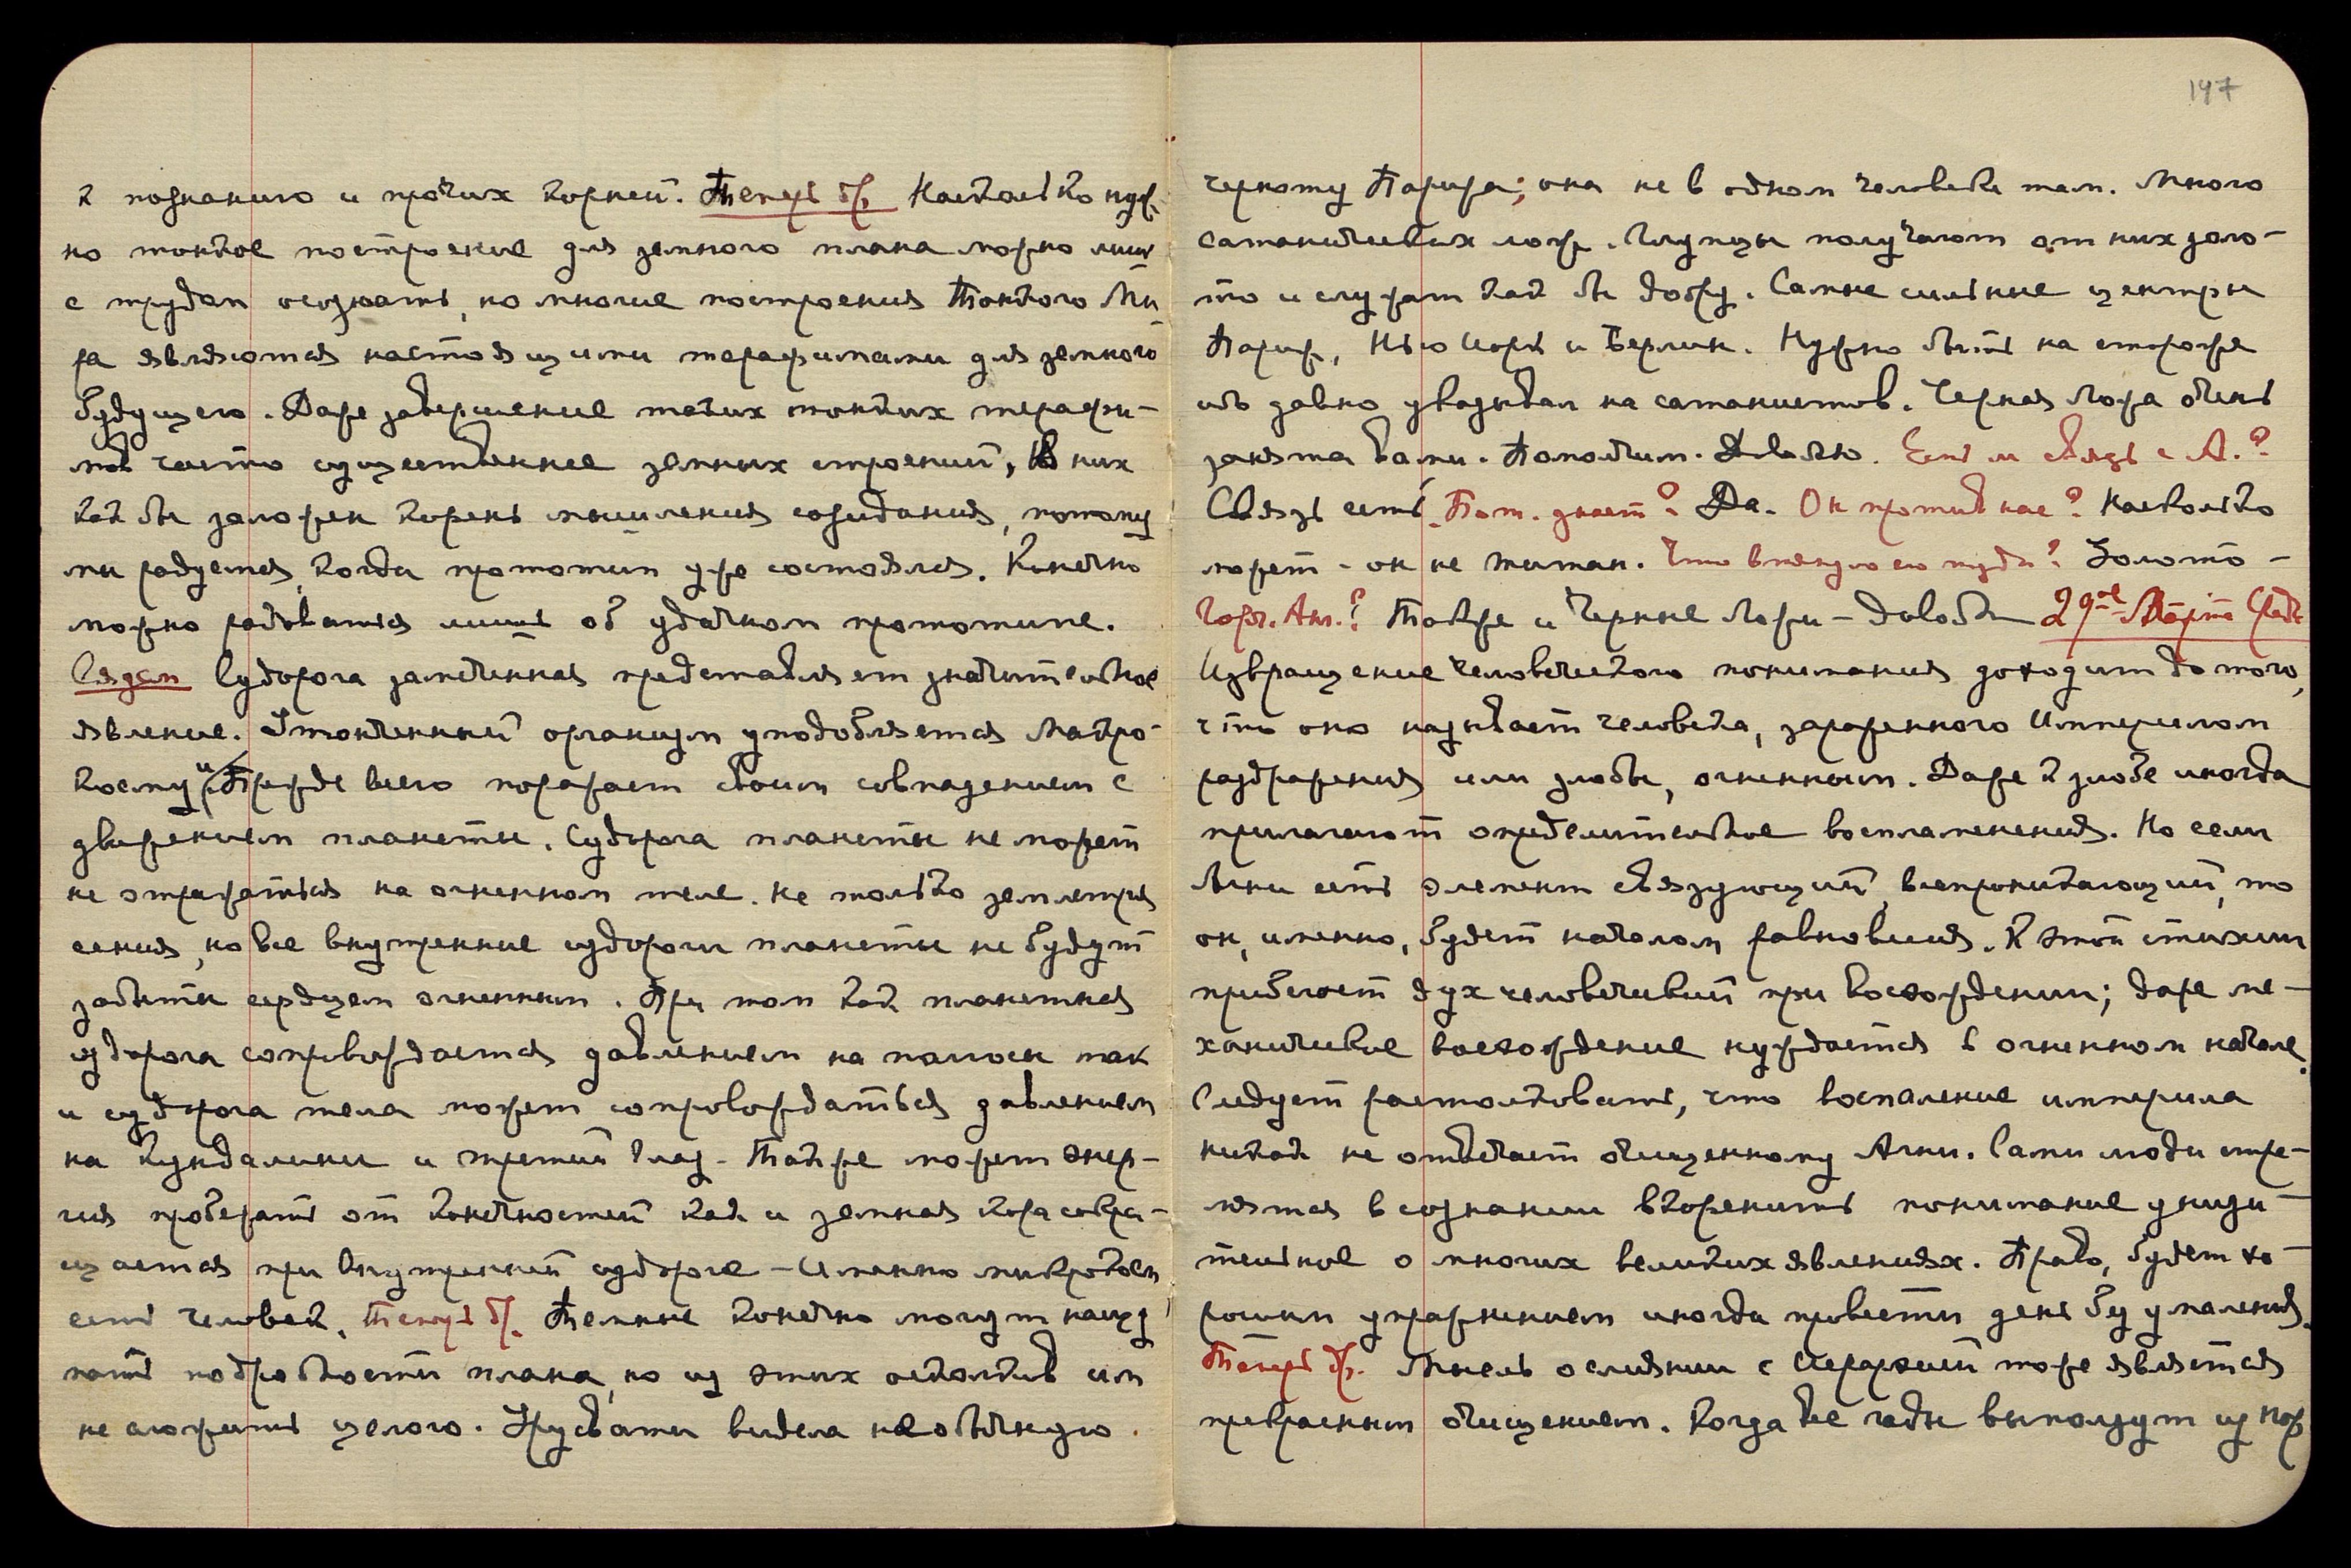 к познанию и прочих корней. Теперь др. Насколько нуж-
но тонкое построение для земного плана можно лишь
с трудом осознать, но многие построения Тонкого Ми-
ра являются настоящими терафимами для земного
будущего. Даже завершение таких тонких терафи-
мов часто существеннее земных строений, В них
как бы заложен корень мышления созидания, потому
мы радуемся, когда прототип уже состоялся. Конечно
можно радоваться лишь об удачном прототипе.
Сядем Судорога замеченная представляет значительное
явление. Утонченный организм уподобляется Макро-
косму и Прежде всего поражает своим совпадением с
движением планеты. Судорога планеты не может
не отражаться на огненном теле. Не только землетря
сения, но все внутренние судороги планеты не будут
забыты сердцем огненным. При том как планетная
судорога сопровождается давлением на полюсы так
и судорога тела может сопровождаться давлением
на Кундалини и третий Глаз - Также может энер-
гия пробегать от конечностей как и земная кора сокра-
щается при внутренней судороге - Именно микрокосм
есть человек. Теперь др. Темные конечно могут нащу
пать подробности плана, но из этих осколков им
не сложить целого. Урусвати видела необычную
147
черноту Парижа; она не в одном человеке там. Много
сатанических лож. Глупцы получают от них золо-
то и служат как бы добру. Самые сильные центры
Париж, Нью Иорк и Берлин. Нужно быть на стороже
ибо давно указывал на сатанистов. Черная Ложа очень
занята вами. Помолчим. Довольно. Есть ли связь с А.?
Связь есть. Пот. знает? Да. Он против нас? Насколько
может - он не титан. Что втянуло его туда? Золото -
Горч. Ан.? Также и Черные Ложи - довольно 29ое Марта Среда
Извращение человеческого понимания доходит до того,
что оно называет человека, зараженного Империлом
раздражения или злобы, огненным. Даже к злобе иногда
прилагают определительное воспламенения. Но если
Агни есть элемент связующий, всепроникающий, то
он, именно, будет началом равновесия. К этой стихии
прибегает дух человеческий при восхождении; даже ме-
ханическое восхождение нуждается в огненном начале.
Следует растолковать, что воспаление империла
никак не отвечает очищенному Агни. Сами люди стре-
мятся в сознании вкоренить понимание унизи-
тельное о многих великих явлениях. Право, будет хо-
рошим упражнением иногда провести день без умаления.
Теперь др. Мысль о слиянии с Иерархией тоже является
прекрасным очищением. Когда все гады выползут из нор